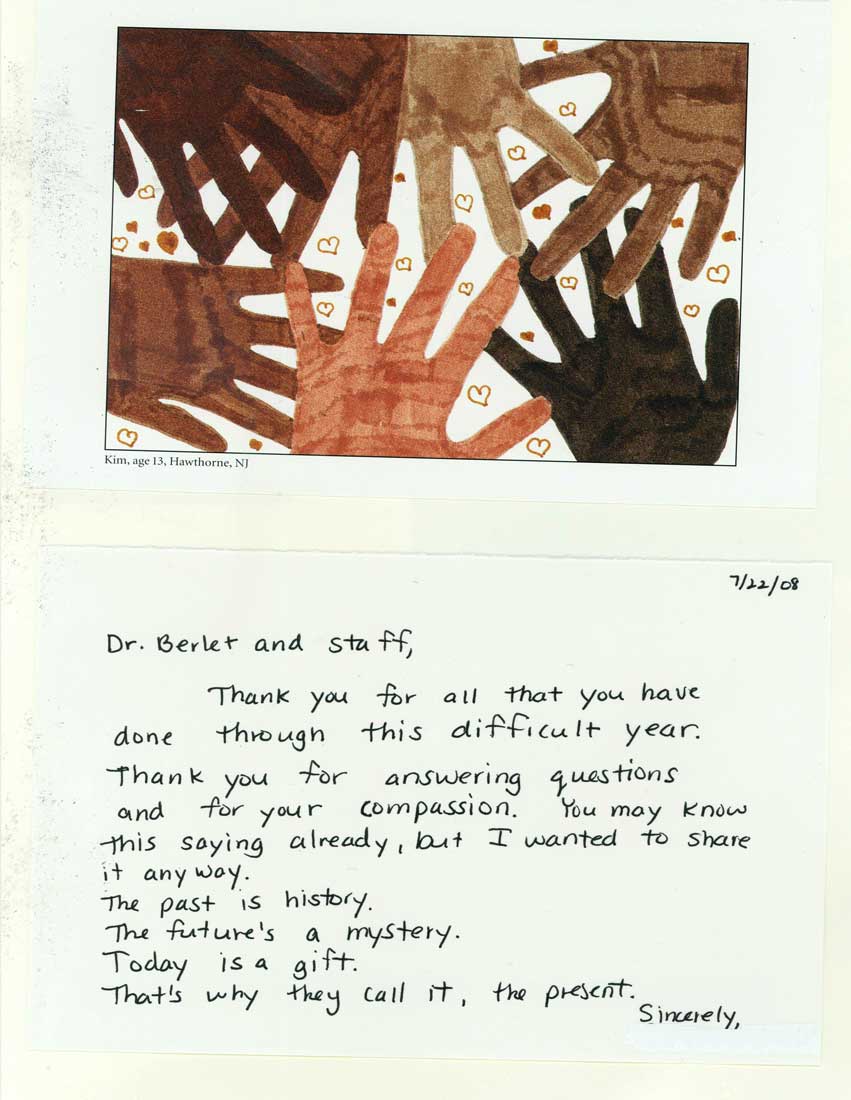 Kim, age 13, Hawthorne, NJ
7/22/08
Dr. Berlet and staff,
Thank you for all that you have
done through this difficult year.
Thank you for answering questions
and for your compassion. You may know
this saying already, but I wanted to share
it anyway.
The past is history.
The future's a mystery.
Today is a gift.
That's why they call it, the present.
Sincerely,